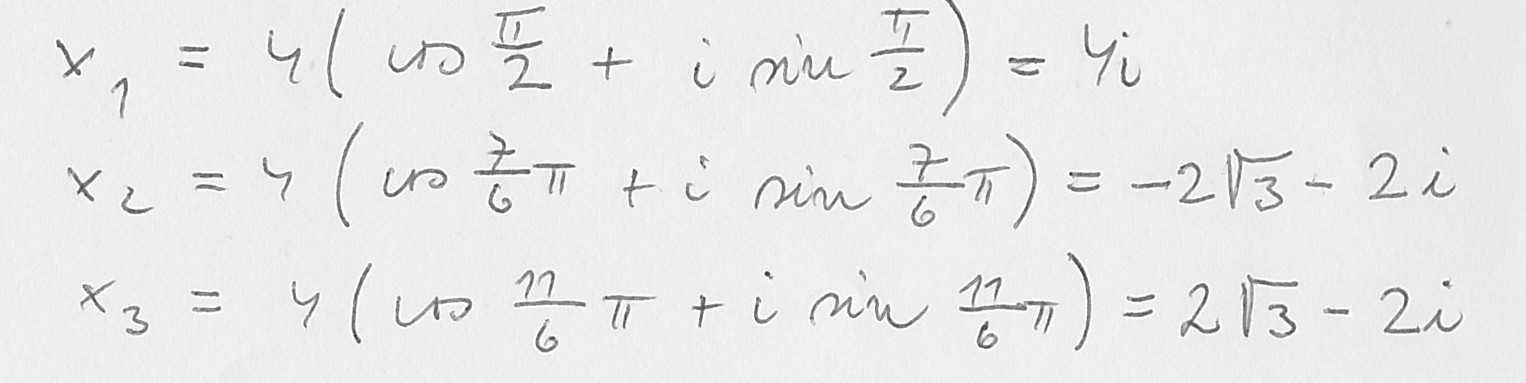 x₁ = 4( cos π/2 + i sin π/2 ) = 4i
x₂ = 4 ( cos 7/6 π + i sin 7/6 π ) = -2√3 - 2i
x₃ = 4 ( cos 11/6 π + i sin 11/6 π ) = 2√3 - 2i